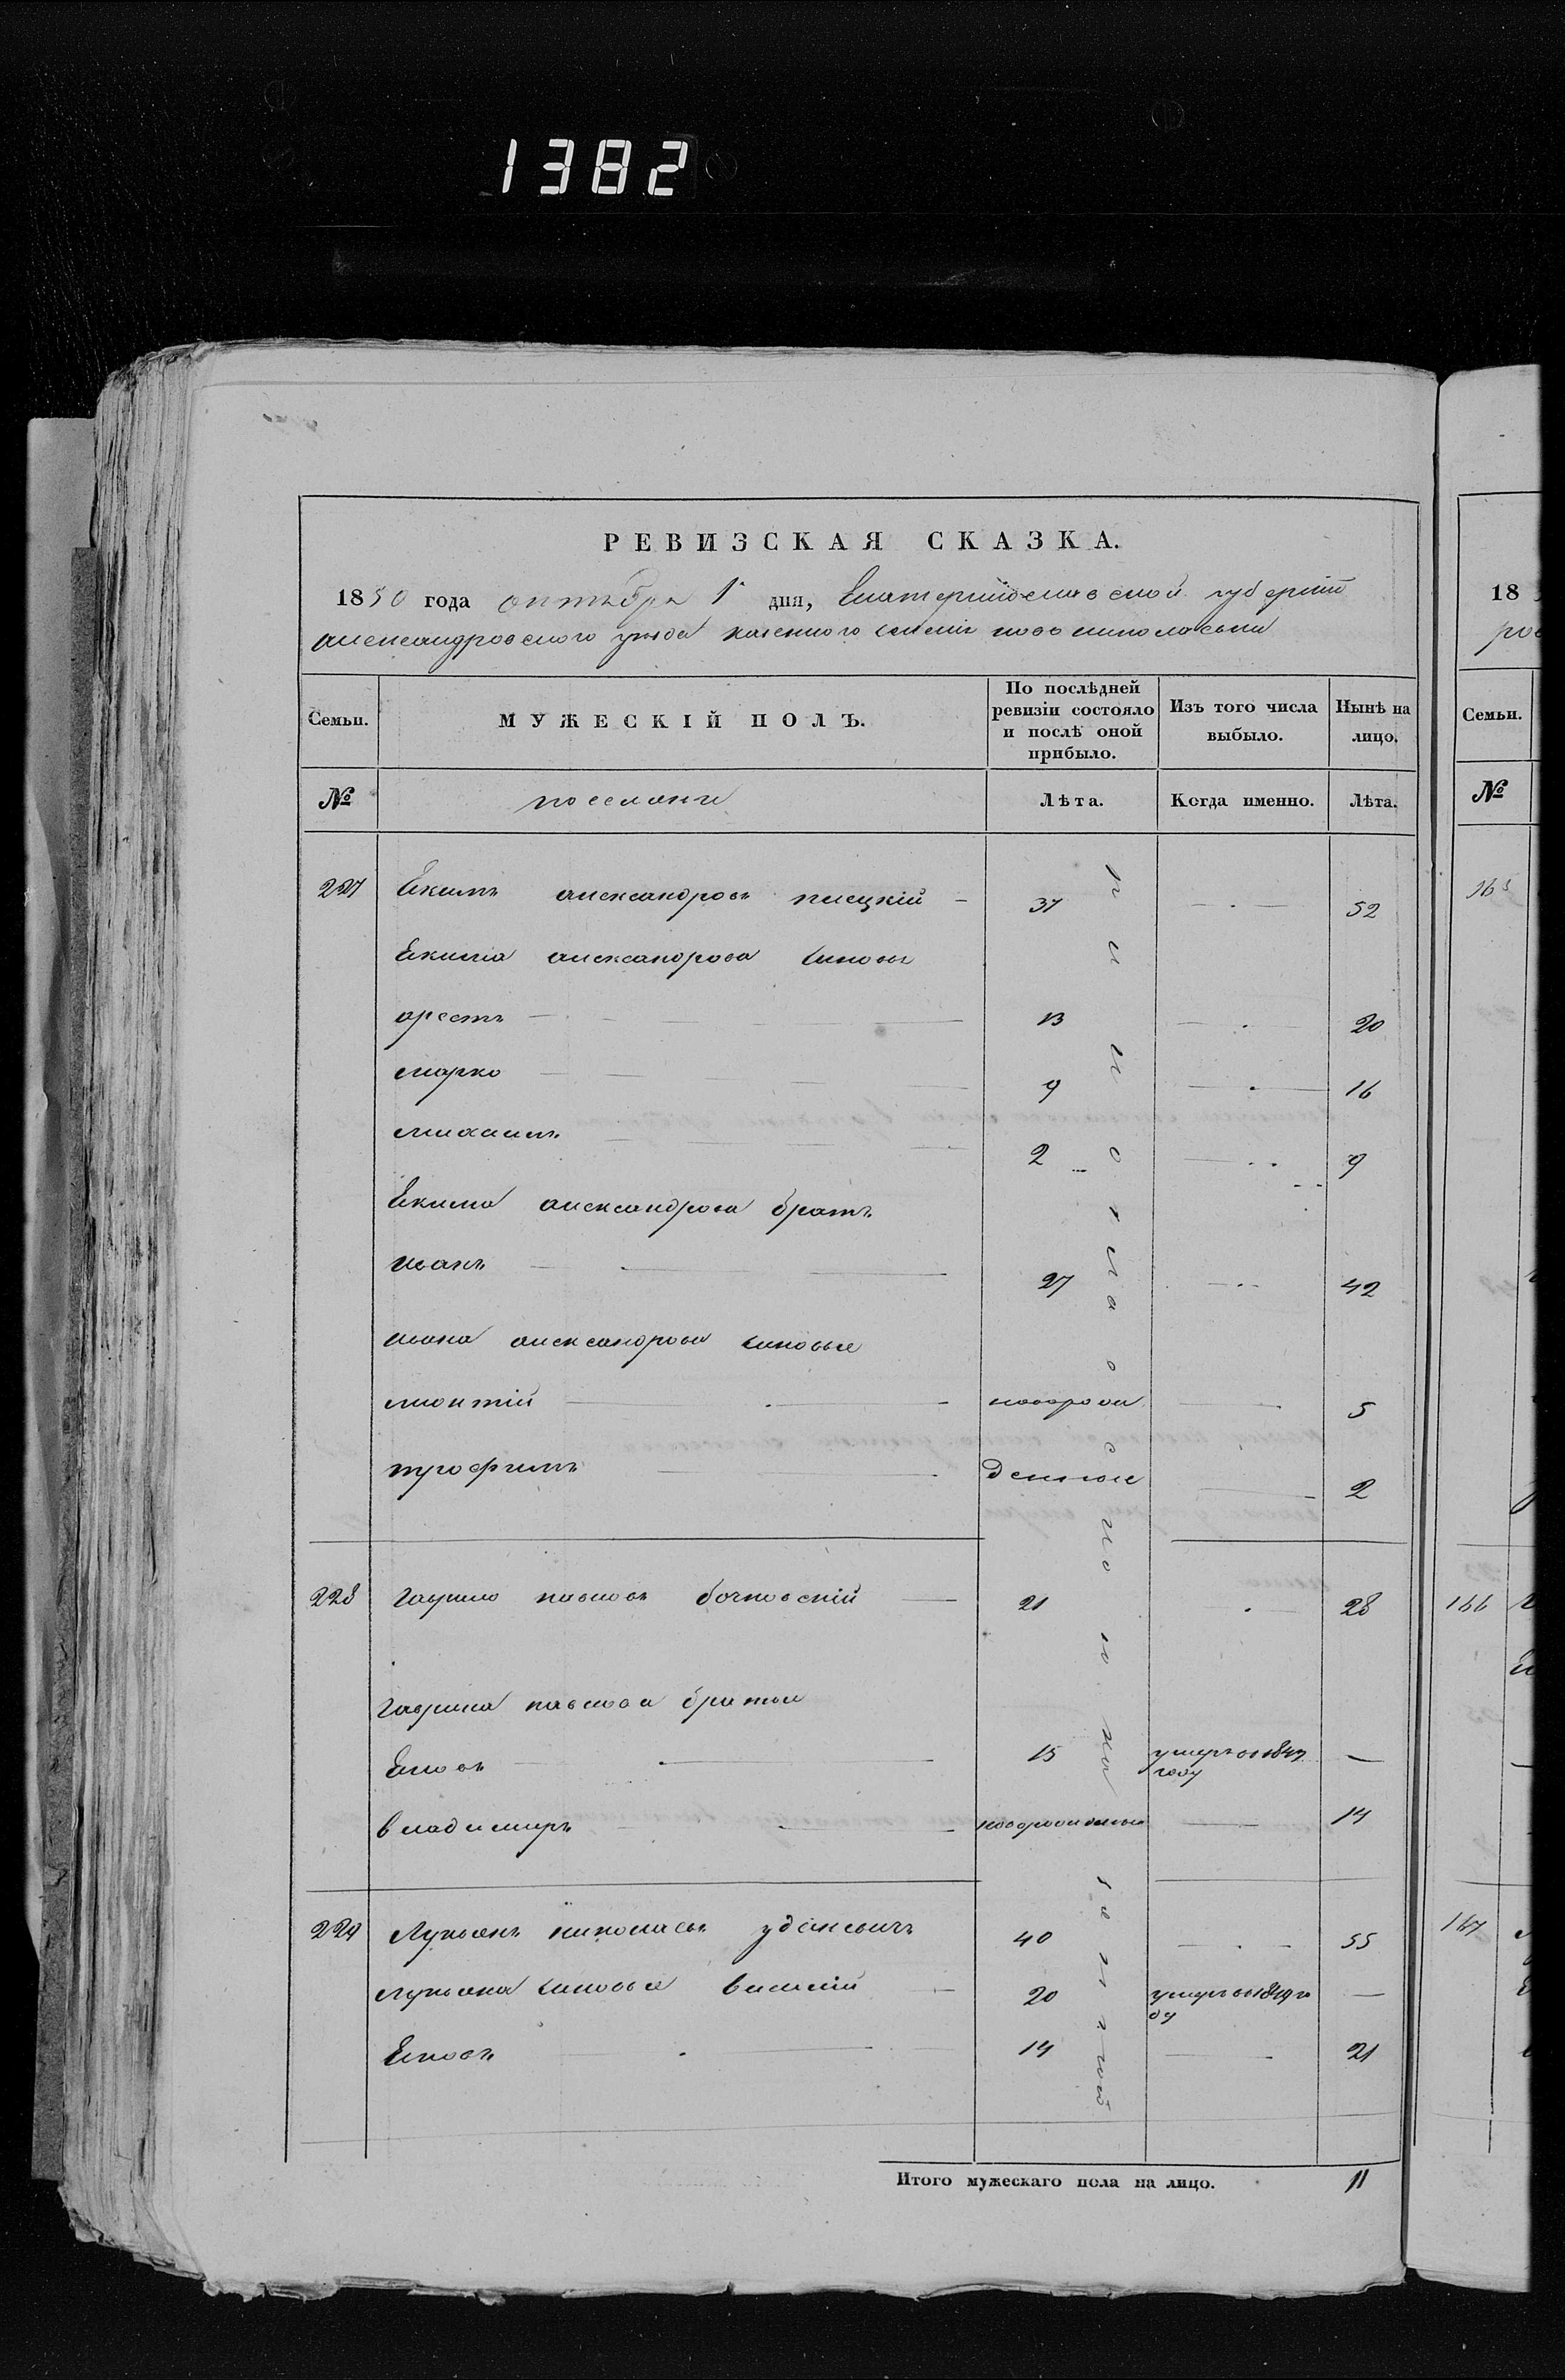 1382
РЕВИЗСКАЯ СКАЗКА.
1850 года октября 1 дня, Екатеринославской губернии
александровского уезда казенного селения ново николаевки
Семьи.
МУЖЕСКІЙ ПОЛЪ.
По послѣдней ревизіи состояло и послѣ оной прибыло.
Изъ того числа выбыло.
Нынѣ на лицо.
№
поселяне
Лѣта.
Когда именно.
Лѣта.
227 Екимъ александровъ 37 52
Екима александрова сыновья
орестъ 13 20
марко 9 16
михаилъ 2 9
Екима александрова братъ
иванъ 27 42
ивана александрова сыновья
новорож
5
трофимъ денные 2
228 Гаврило павловъ бочковскій 21 28
Гаврила павлова братья
15 умеръ въ 1847 году —
владимиръ новорожденный 14
229 Лукьянъ николаевъ 40 55
лукьяна сыновья василій 20 умеръ въ 1849 го
ду —
14 21
Итого мужескаго пола на лицо. 11
18
Семьи.
№
165
166
167